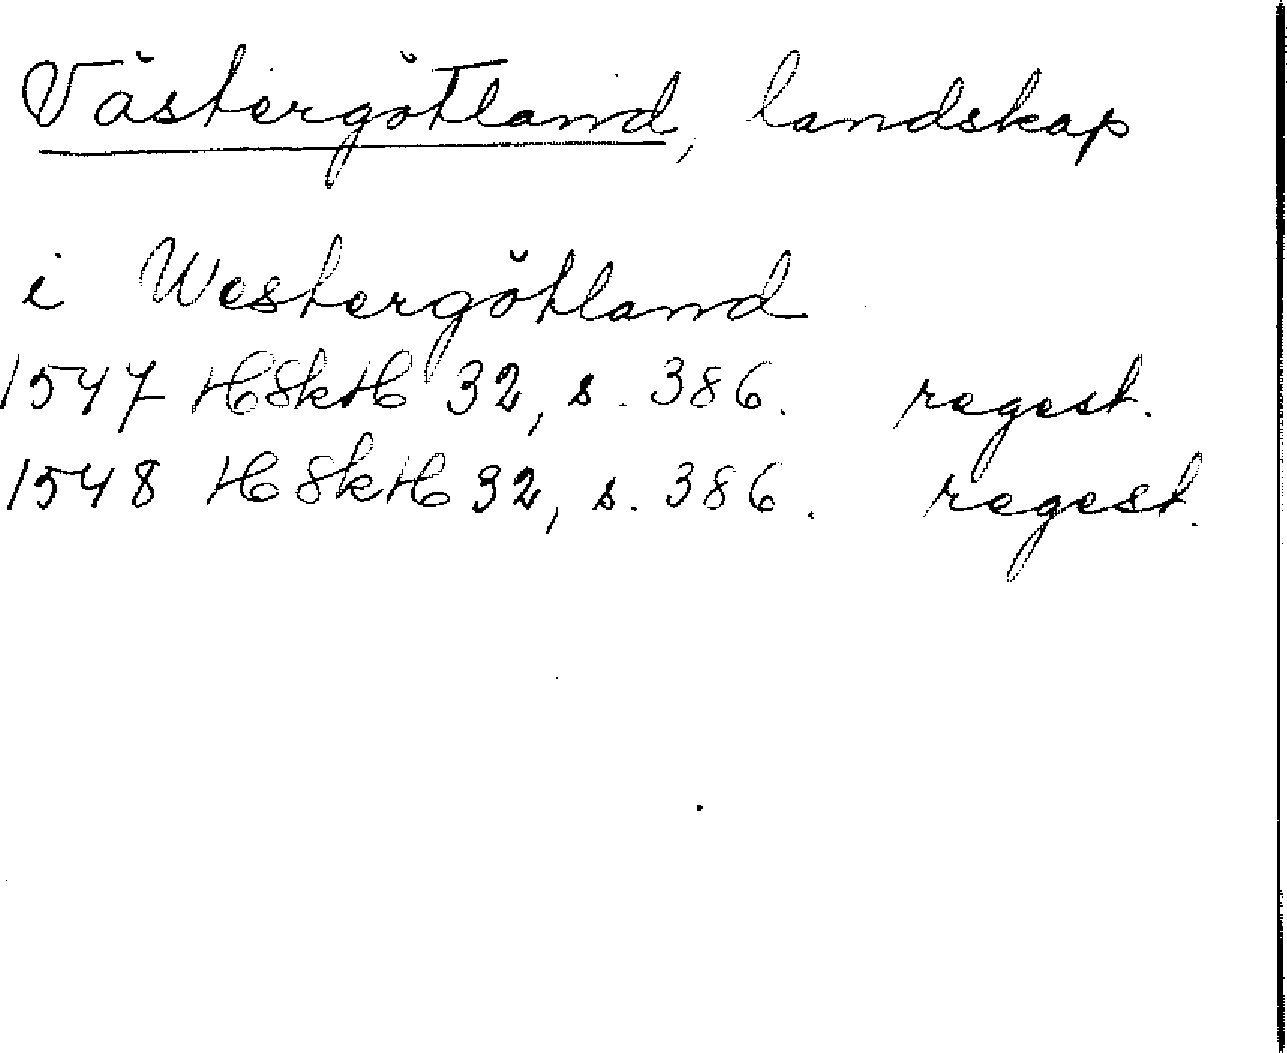 Västergötland, landskap
i Westergötland
1547 HSkH 32, s. 386. regest.
1548 HSkH 32, s. 386. regest.